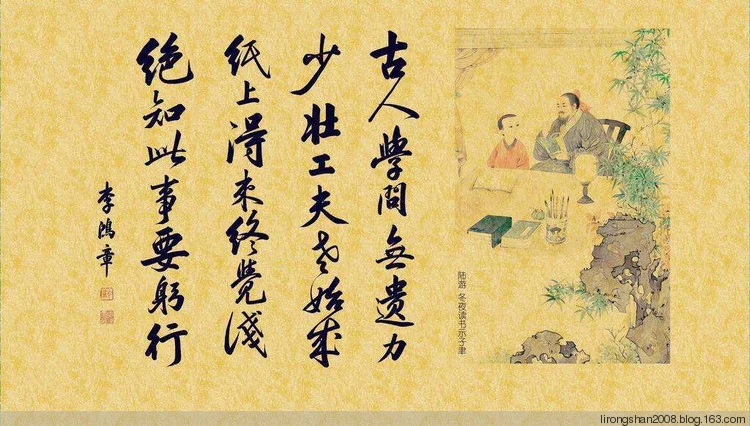 古人學問無遺力
少壯工夫老始成
紙上得來終覺淺
绝知此事要躬行
李鴻章
陆游 冬夜读书示子聿
lirongshan2008.blog.163.com